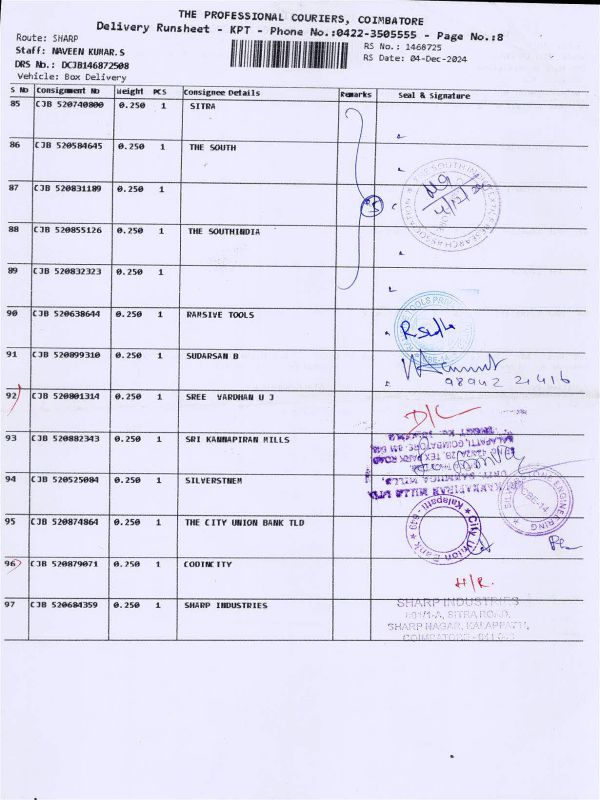 THE PROFESSIONAL COURIERS, COIMBATORE
Delivery Runsheet - KPT - Phone No.:0422-3505555 - Page No.:8
Route: SHARP
RS No.: 1468725
Staff: NAVEEN KUMAR.S
RS Date: 04-Dec-2024
DRS No.: DCJB146872508
Vehicle: Box Delivery
S No Consignment No Weight PCS Consignee Details Remarks Seal & signature
85 CJB 520740800 0.250 1 SITRA
86 CJB 520584645 0.250 1 THE SOUTH
87 CJB 520831189 0.250 1
88 CJB 520855126 0.250 1 THE SOUTHINDIA
89 CJB 520832323 0.250 1
90 CJB 520638644 0.250 1 RANSIVE TOOLS
91 CJB 520899310 0.250 1 SUDARSAN B
98942 21416
92 CJB 520801314 0.250 1 SREE VARDHAN U J
D/L
93 CJB 520882343 0.250 1 SRI KANNAPIRAN MILLS
KANNAPIRAN MILLS LTD.
94 CJB 520525084 0.250 1 SILVERSTNEM
ENGINEERING
95 CJB 520874864 0.250 1 THE CITY UNION BANK TLD
City Union Bank Kalapatti - 649
96 CJB 520879071 0.250 1 CODINCITY
H/R.
97 CJB 520684359 0.250 1 SHARP INDUSTRIES
SHARP INDUSTRIES
SITRA ROAD,
SHARP NAGAR, KALAPPATTI,